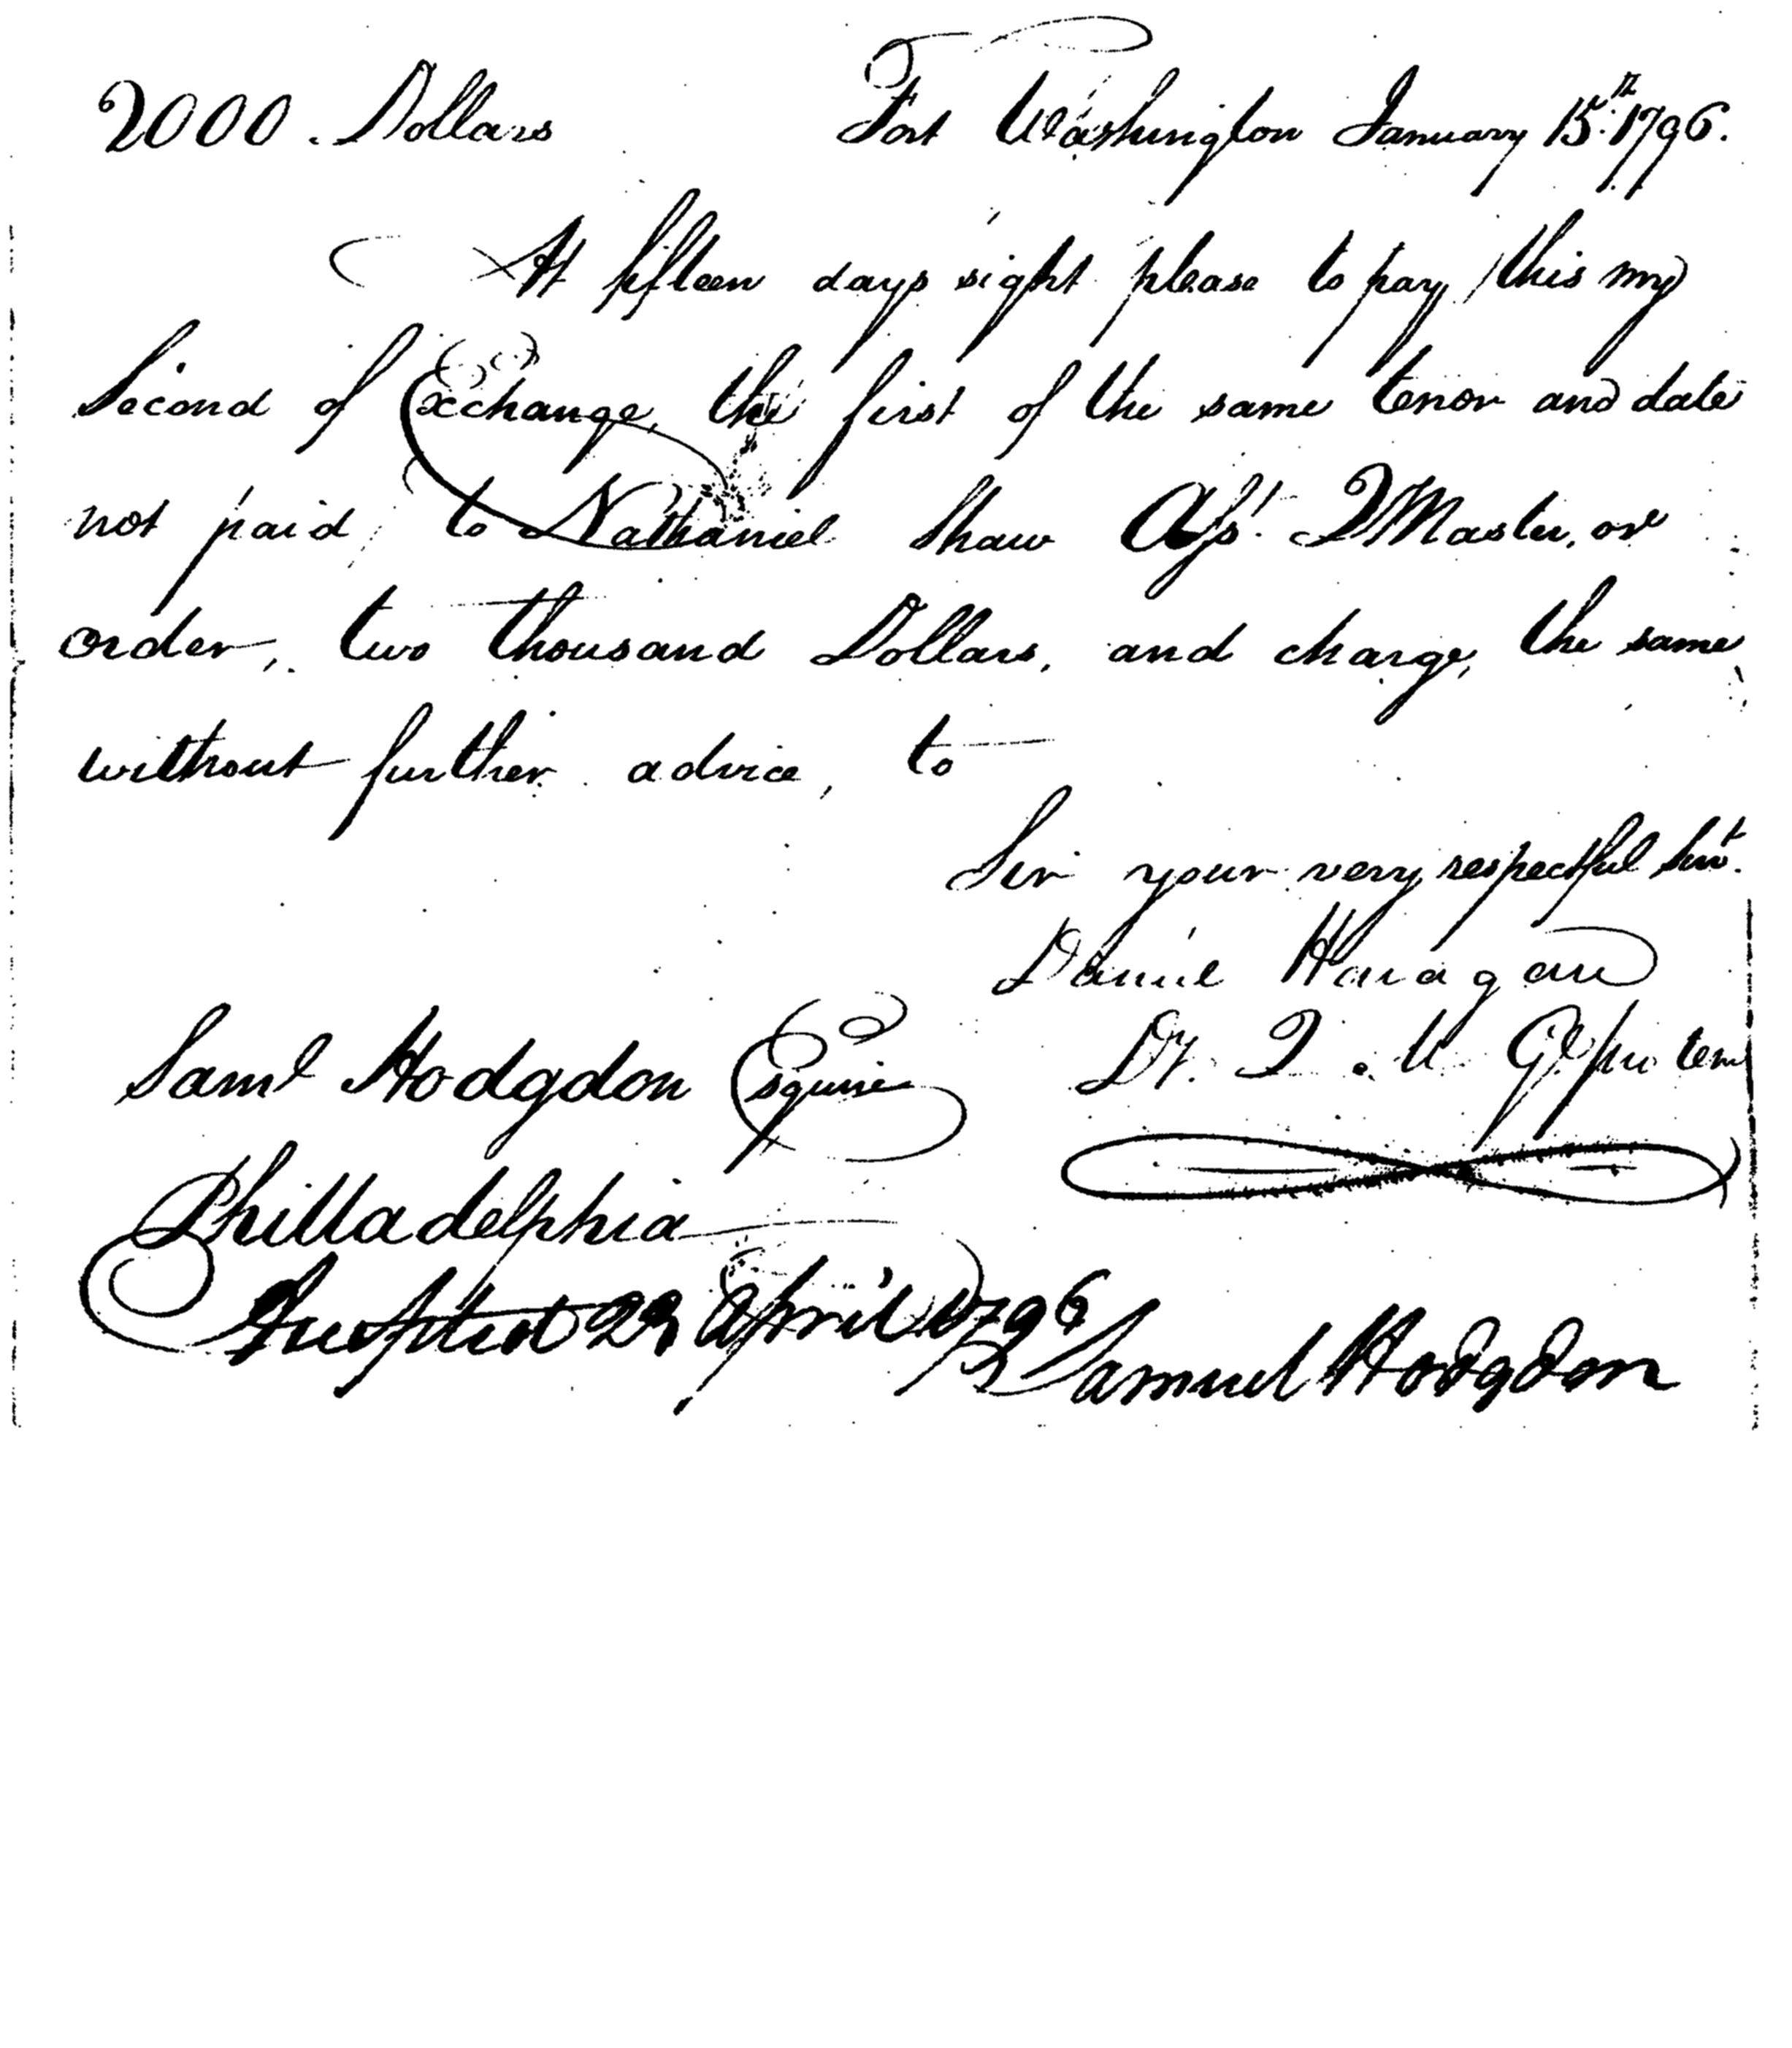 2000. Dollars Fort Washington January 15th. 1796.
At fifteen days sight please to pay this my
Second of Exchange, the first of the same tenor and date
not paid, to Nathaniel Shaw Asst. QMaster, or
order, two thousand Dollars, and charge, the same
without further advice, to
Sir your very respectful Servt.
Daniel Haragan
Dy. Q. M. Gl. pro tem
Saml Hodgdon Esquire
Philladelphia
Accepted 29 April 1796 Samuel Hodgdon